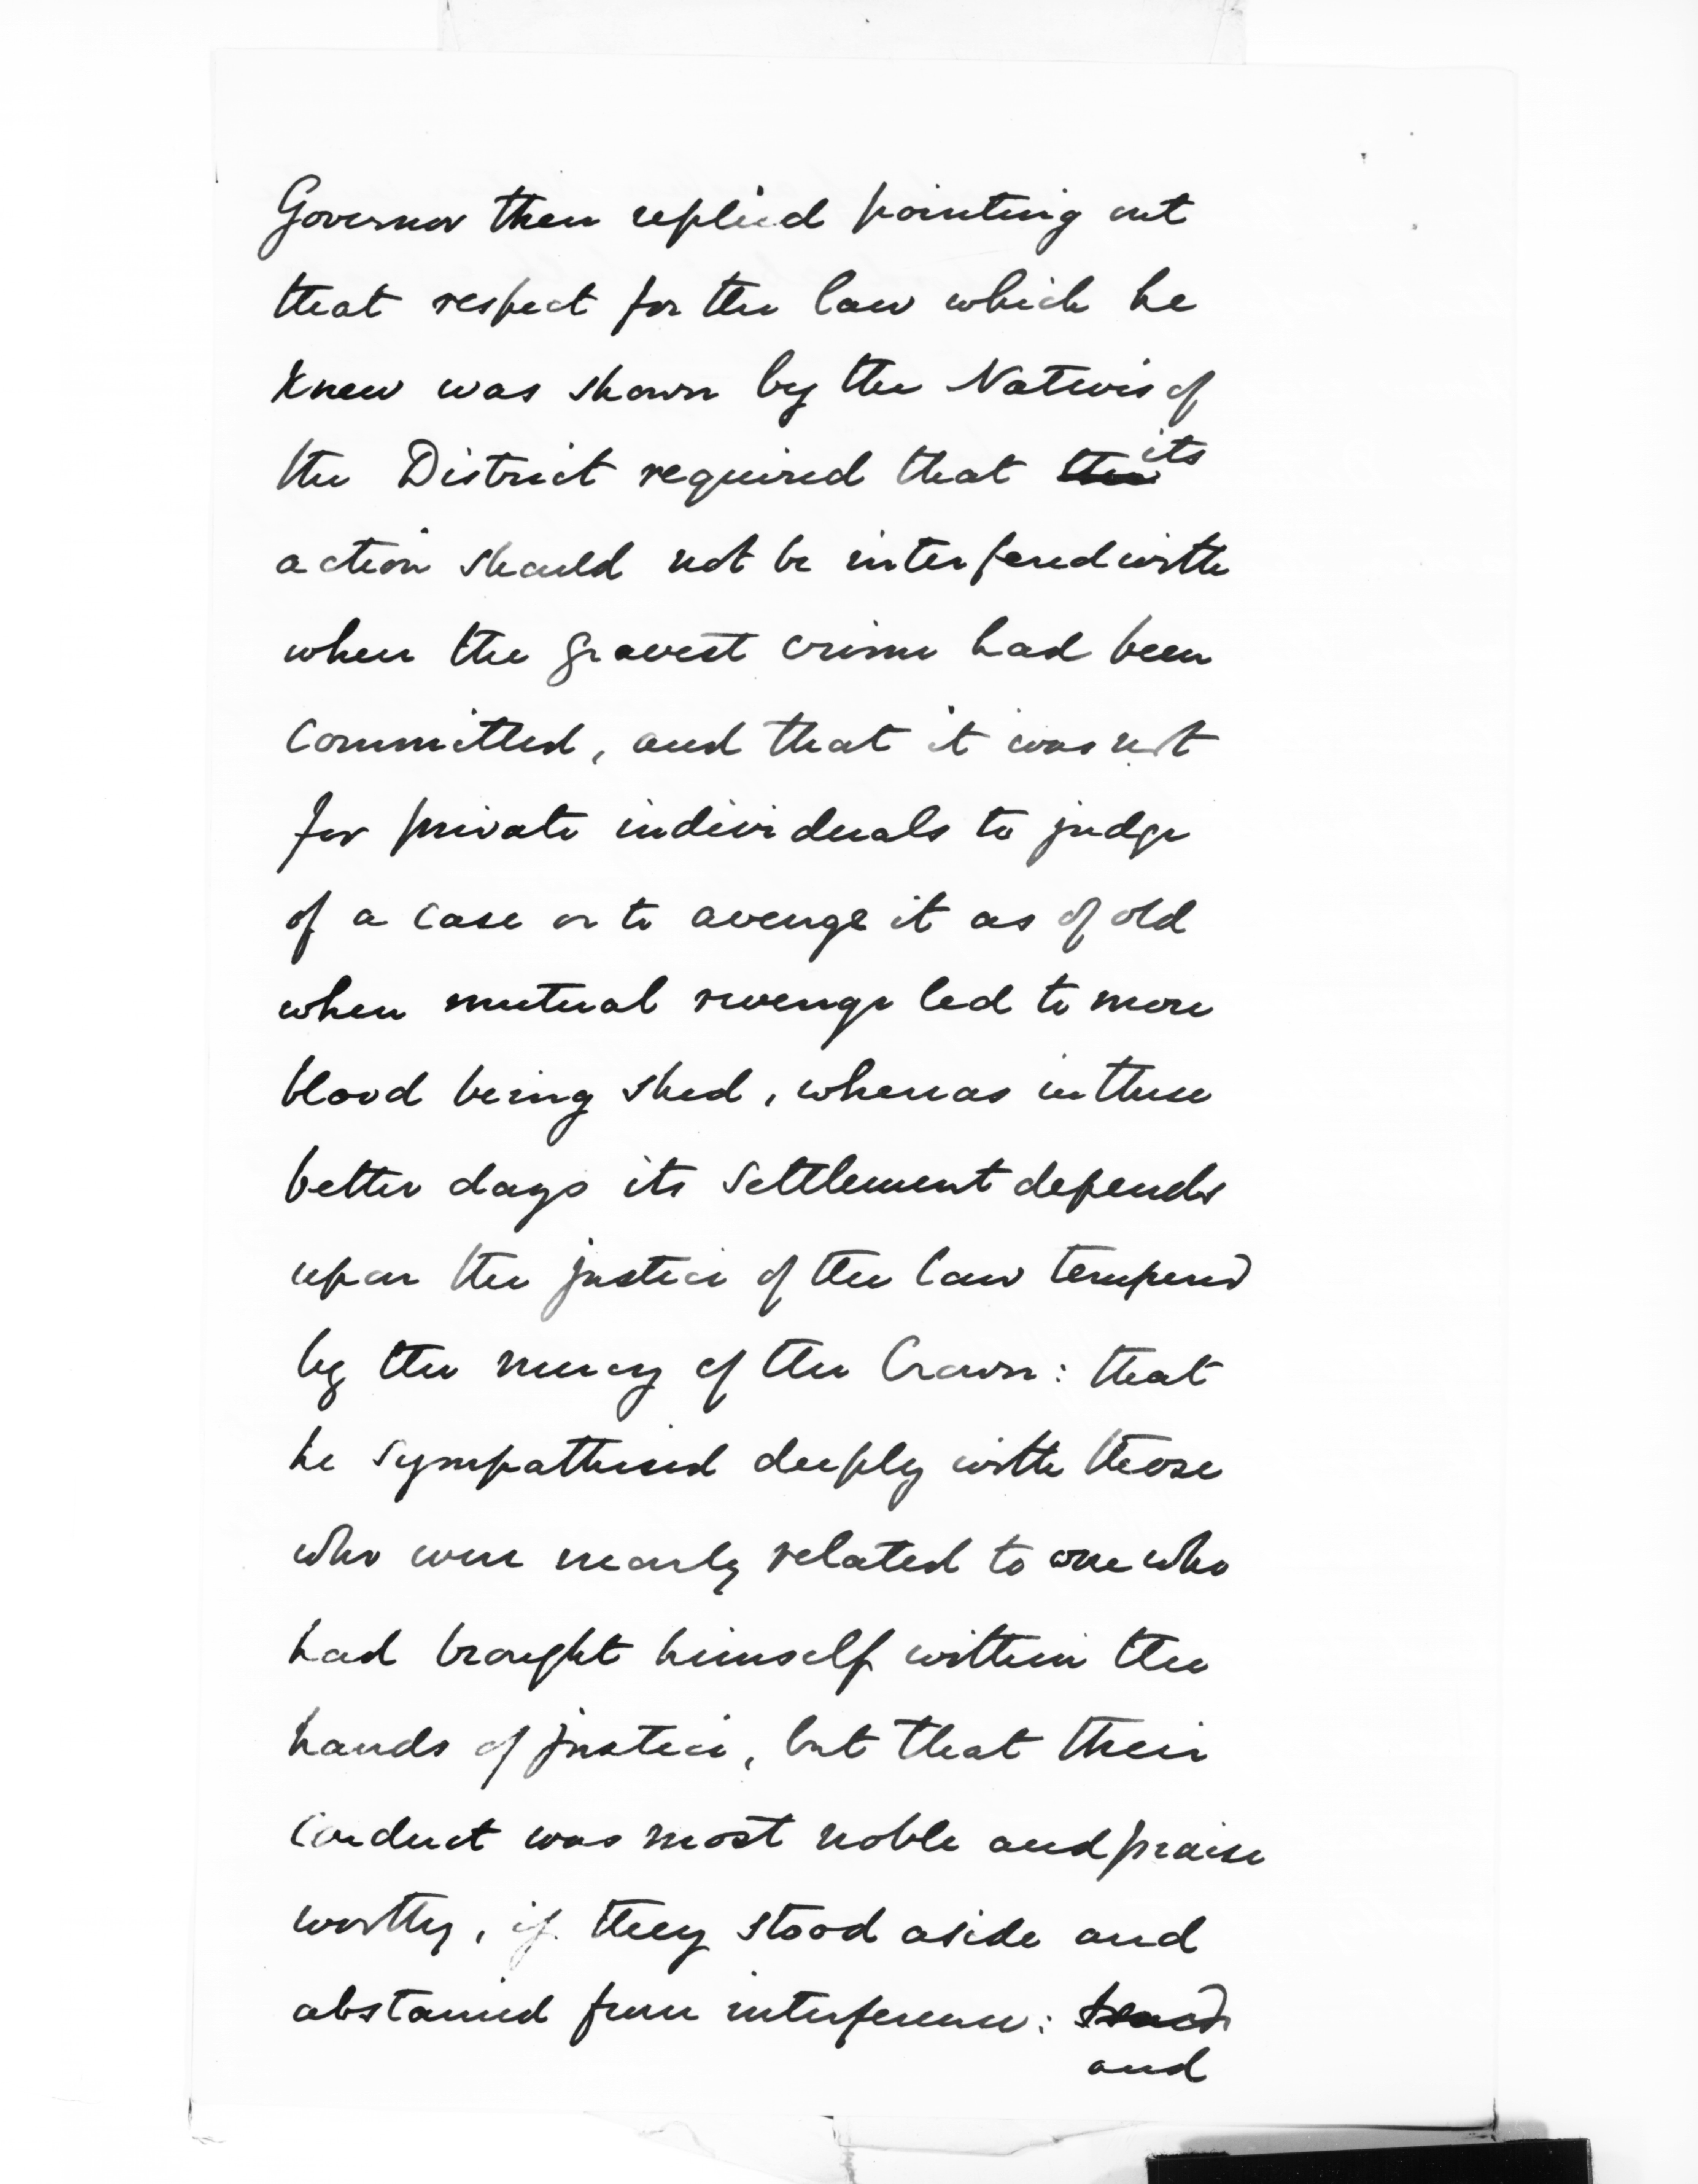 Governor then replied pointing out
that respect for the law which he
knew was shown by the Natives of
the District required that its
action should not be interfered with
when the gravest crime had been
committed, and that it was not
for private individuals to judge
of a case or to avenge it as of old
when mutual revenge led to more
blood being shed, whereas in these
better days its settlement depends
upon the justice of the law tempered
by the mercy of the Crown: that
he sympathised deeply with those
who were nearly related to one who
had brought himself within the
hands of justice, but that their
conduct was most noble and praise
worthy, if they stood aside and
abstained from interference:
and